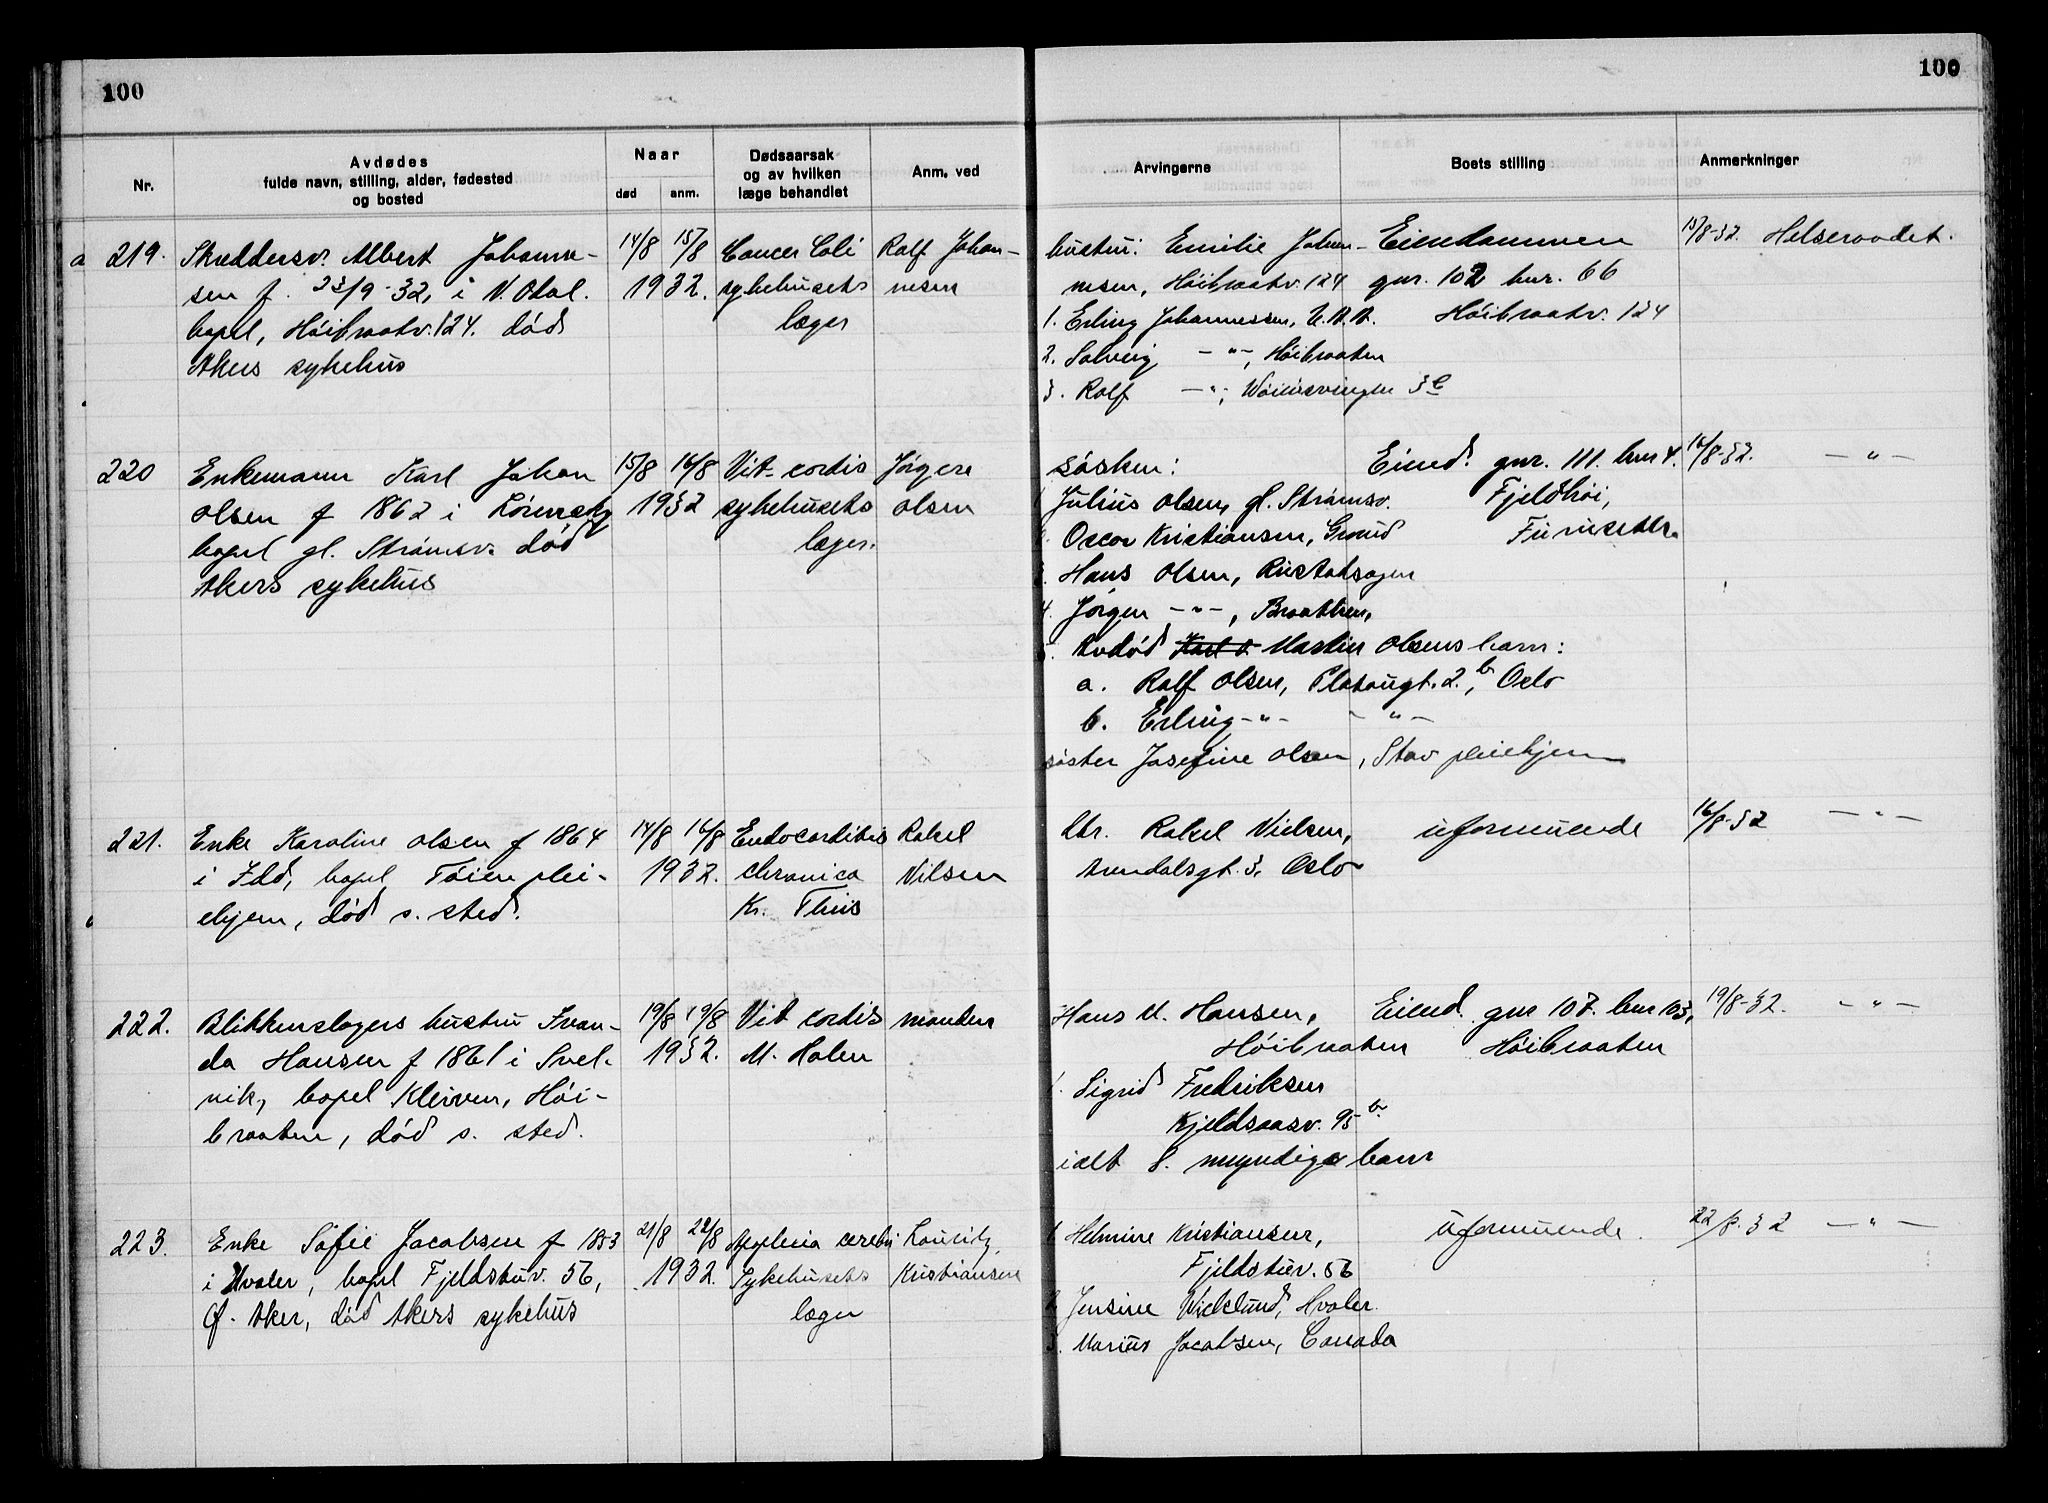 100
100
Nr.
Avdødes
fulde navn, stilling, alder, fødested
og bosted
Naar
død
anm.
Dødsaarsak
og av hvilken
læge behandlet
Anm. ved
Arvingerne
Boets stilling
Anmerkninger
a 219. Skreddersv. Albert Johanne-
sen f. 23/9-32, i V. Otal.
bopel, Höibraatv. 124. död
Akers sykehus
14/8 15/8
1932.
Cancer Coli
sykehusets
læger
Rolf Johan-
nesen
hustru: Emilie Johan-
nesen, Höibraatv. 124
1. Erling Johannessen, U.S.A.
2. Solveig —"—, Höibraaten
3. Rolf —"—, svingen 3 c
Eiendommen
gnr. 102 bnr. 66
Höibraatv. 124
15/8-32. Helseraadet.
220 Enkemann Karl Johan
Olsen f 1862 i Lörenskog
bopel gl. Strömsv. död
Akers sykehus
15/8 16/8
1932
Vit. cordis
sykehusets
læger.
Jörgen
Olsen
søsken:
1. Julius Olsen, gl. Strömsv.
2. Oscar Kristiansen, Grorud
3. Hans Olsen, Rustadsagen
4. Jörgen —"—, Braathen,
5. Avdöd Karl O. Martin Olsens barn:
a. Rolf Olsen, Platougt. 2 b, Oslo
b. Erling —"— —"—
söster Josefine Olsen, Stav pleiehjem
Eiend. gnr. 111. bnr 4.
Fjeldhöi,
Furuset
16/8-32. —"—
221. Enke Karoline Olsen f 1864
i Idd, bopel Töien plei-
ehjem, död s. sted.
14/8 16/8
1932.
Endocarditis
chronica
Kr. Thiis
Rakel
Nilsen
Dtr. Rakel Nielsen,
Arendalsgt. 3, Oslo
uformuende
16/8-32 —"—
222. Blikkenslagers hustru Ivan-
da Hansen f 1861 i Svel-
vik, bopel Kleiven, Höi-
braaten, död s. sted.
19/8 19/8
1932.
Vit cordis
M. Holen
manden
Hans M. Hansen,
Höibraaten
1. Sigrid Fredriksen
Kjeldsaasv. 95 b
ialt 8. myndige barn
Eiend. gnr 107. bnr 103,
Höibraaten
19/8-32. —"—
223. Enke Sofie Jacobsen f 1853
i Hvaler, bopel Fjeldstuv. 56,
Ö. Aker, död Akers sykehus
21/8 22/8
1932.
Apoplexia cerebri
Sykehusets
læger
Lauritz
Kristiansen
1. Helmine Kristiansen,
Fjeldstuv. 56
2. Jensine Wicklund, Hvaler.
3. Marius Jacobsen, Canada
Uformuende.
22/8-32 —"—